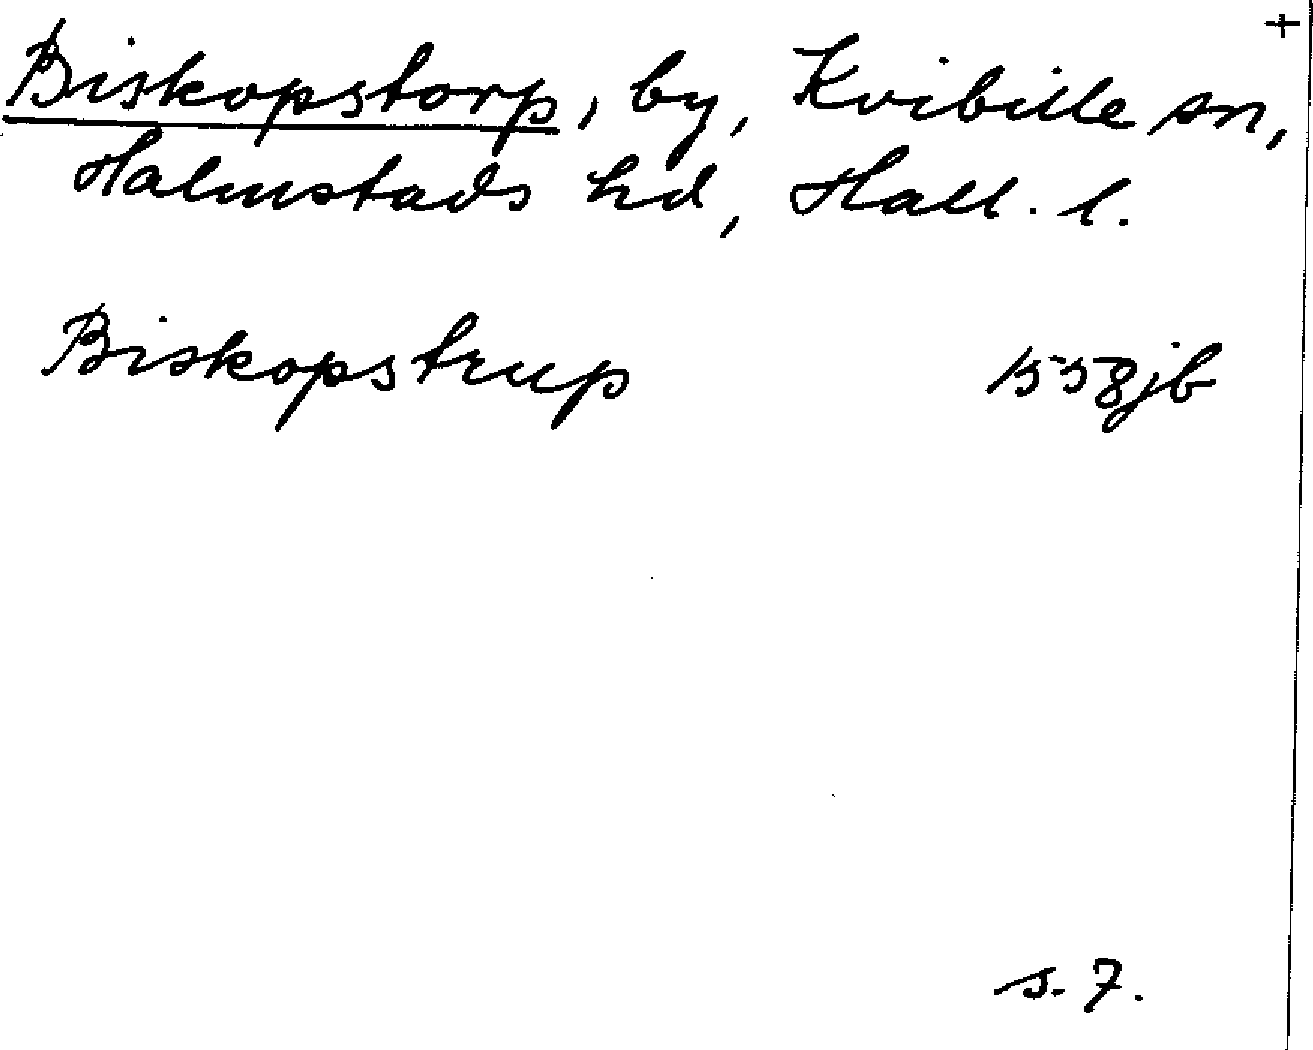 +
Biskopstorp, by, Kvibille sn,
Halmstads hd, Hall. l.
Biskopstrup 1558jb
s. 7.